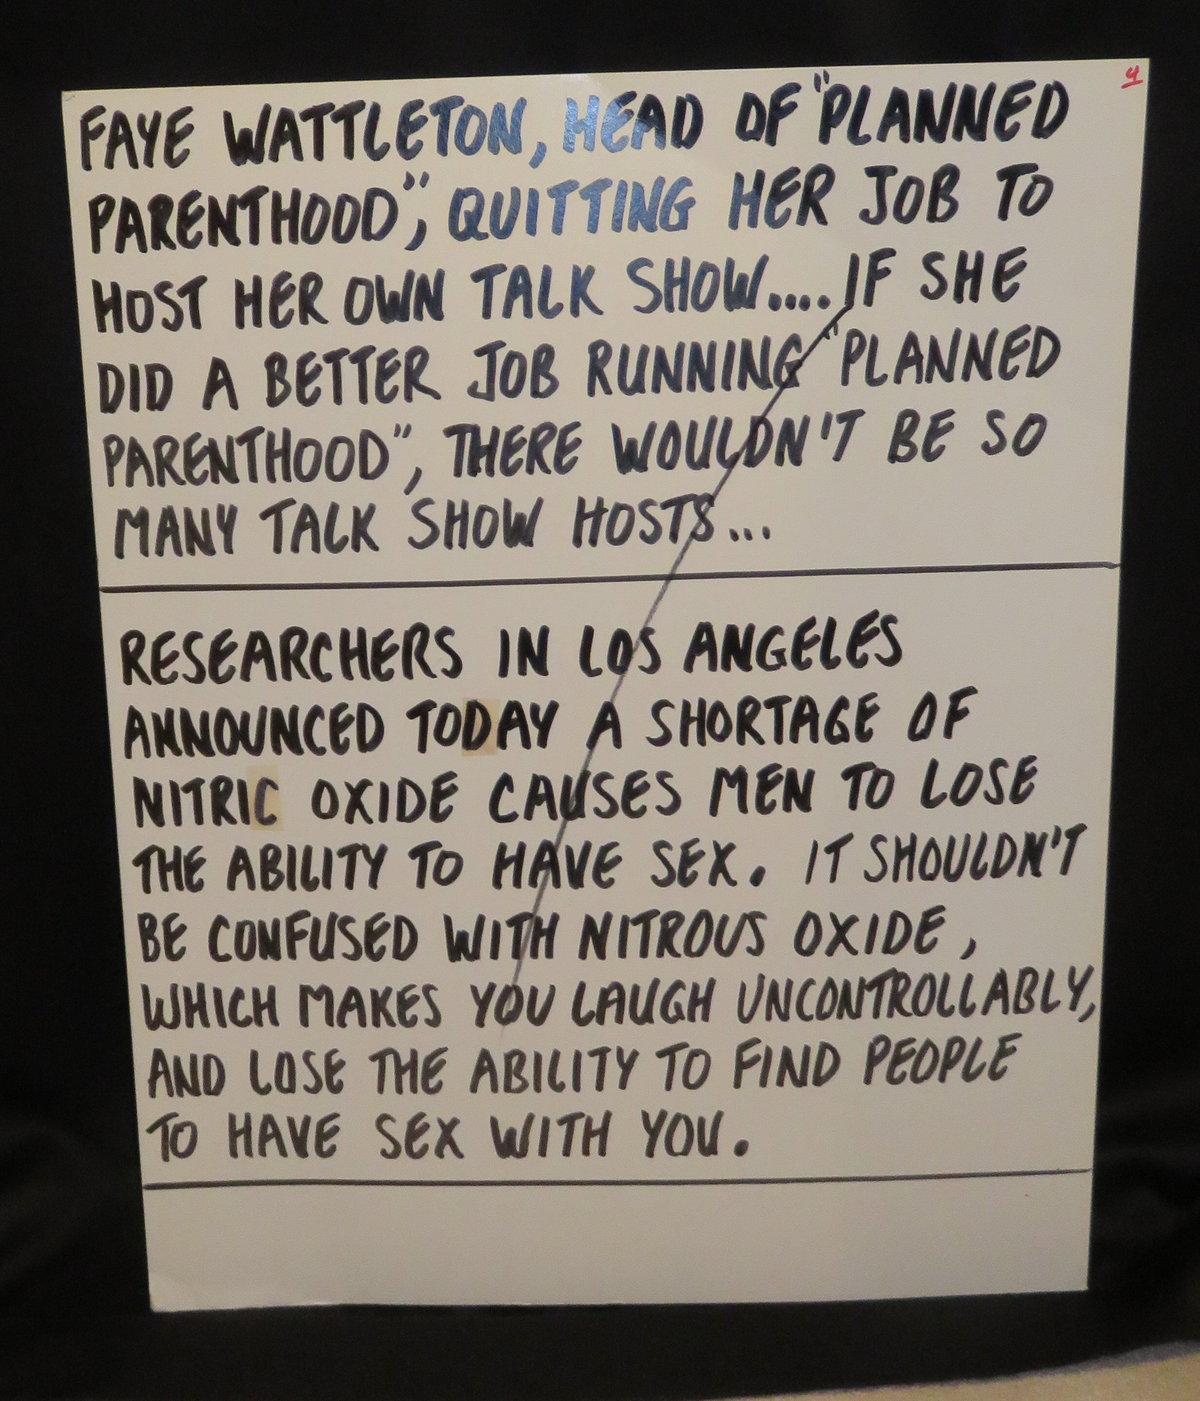 4
FAYE WATTLETON, HEAD OF "PLANNED
PARENTHOOD", QUITTING HER JOB TO
HOST HER OWN TALK SHOW.... IF SHE
DID A BETTER JOB RUNNING "PLANNED
PARENTHOOD", THERE WOULDN'T BE SO
MANY TALK SHOW HOSTS...
RESEARCHERS IN LOS ANGELES
ANNOUNCED TODAY A SHORTAGE OF
NITRIC OXIDE CAUSES MEN TO LOSE
THE ABILITY TO HAVE SEX. IT SHOULDN'T
BE CONFUSED WITH NITROUS OXIDE,
WHICH MAKES YOU LAUGH UNCONTROLLABLY,
AND LOSE THE ABILITY TO FIND PEOPLE
TO HAVE SEX WITH YOU.